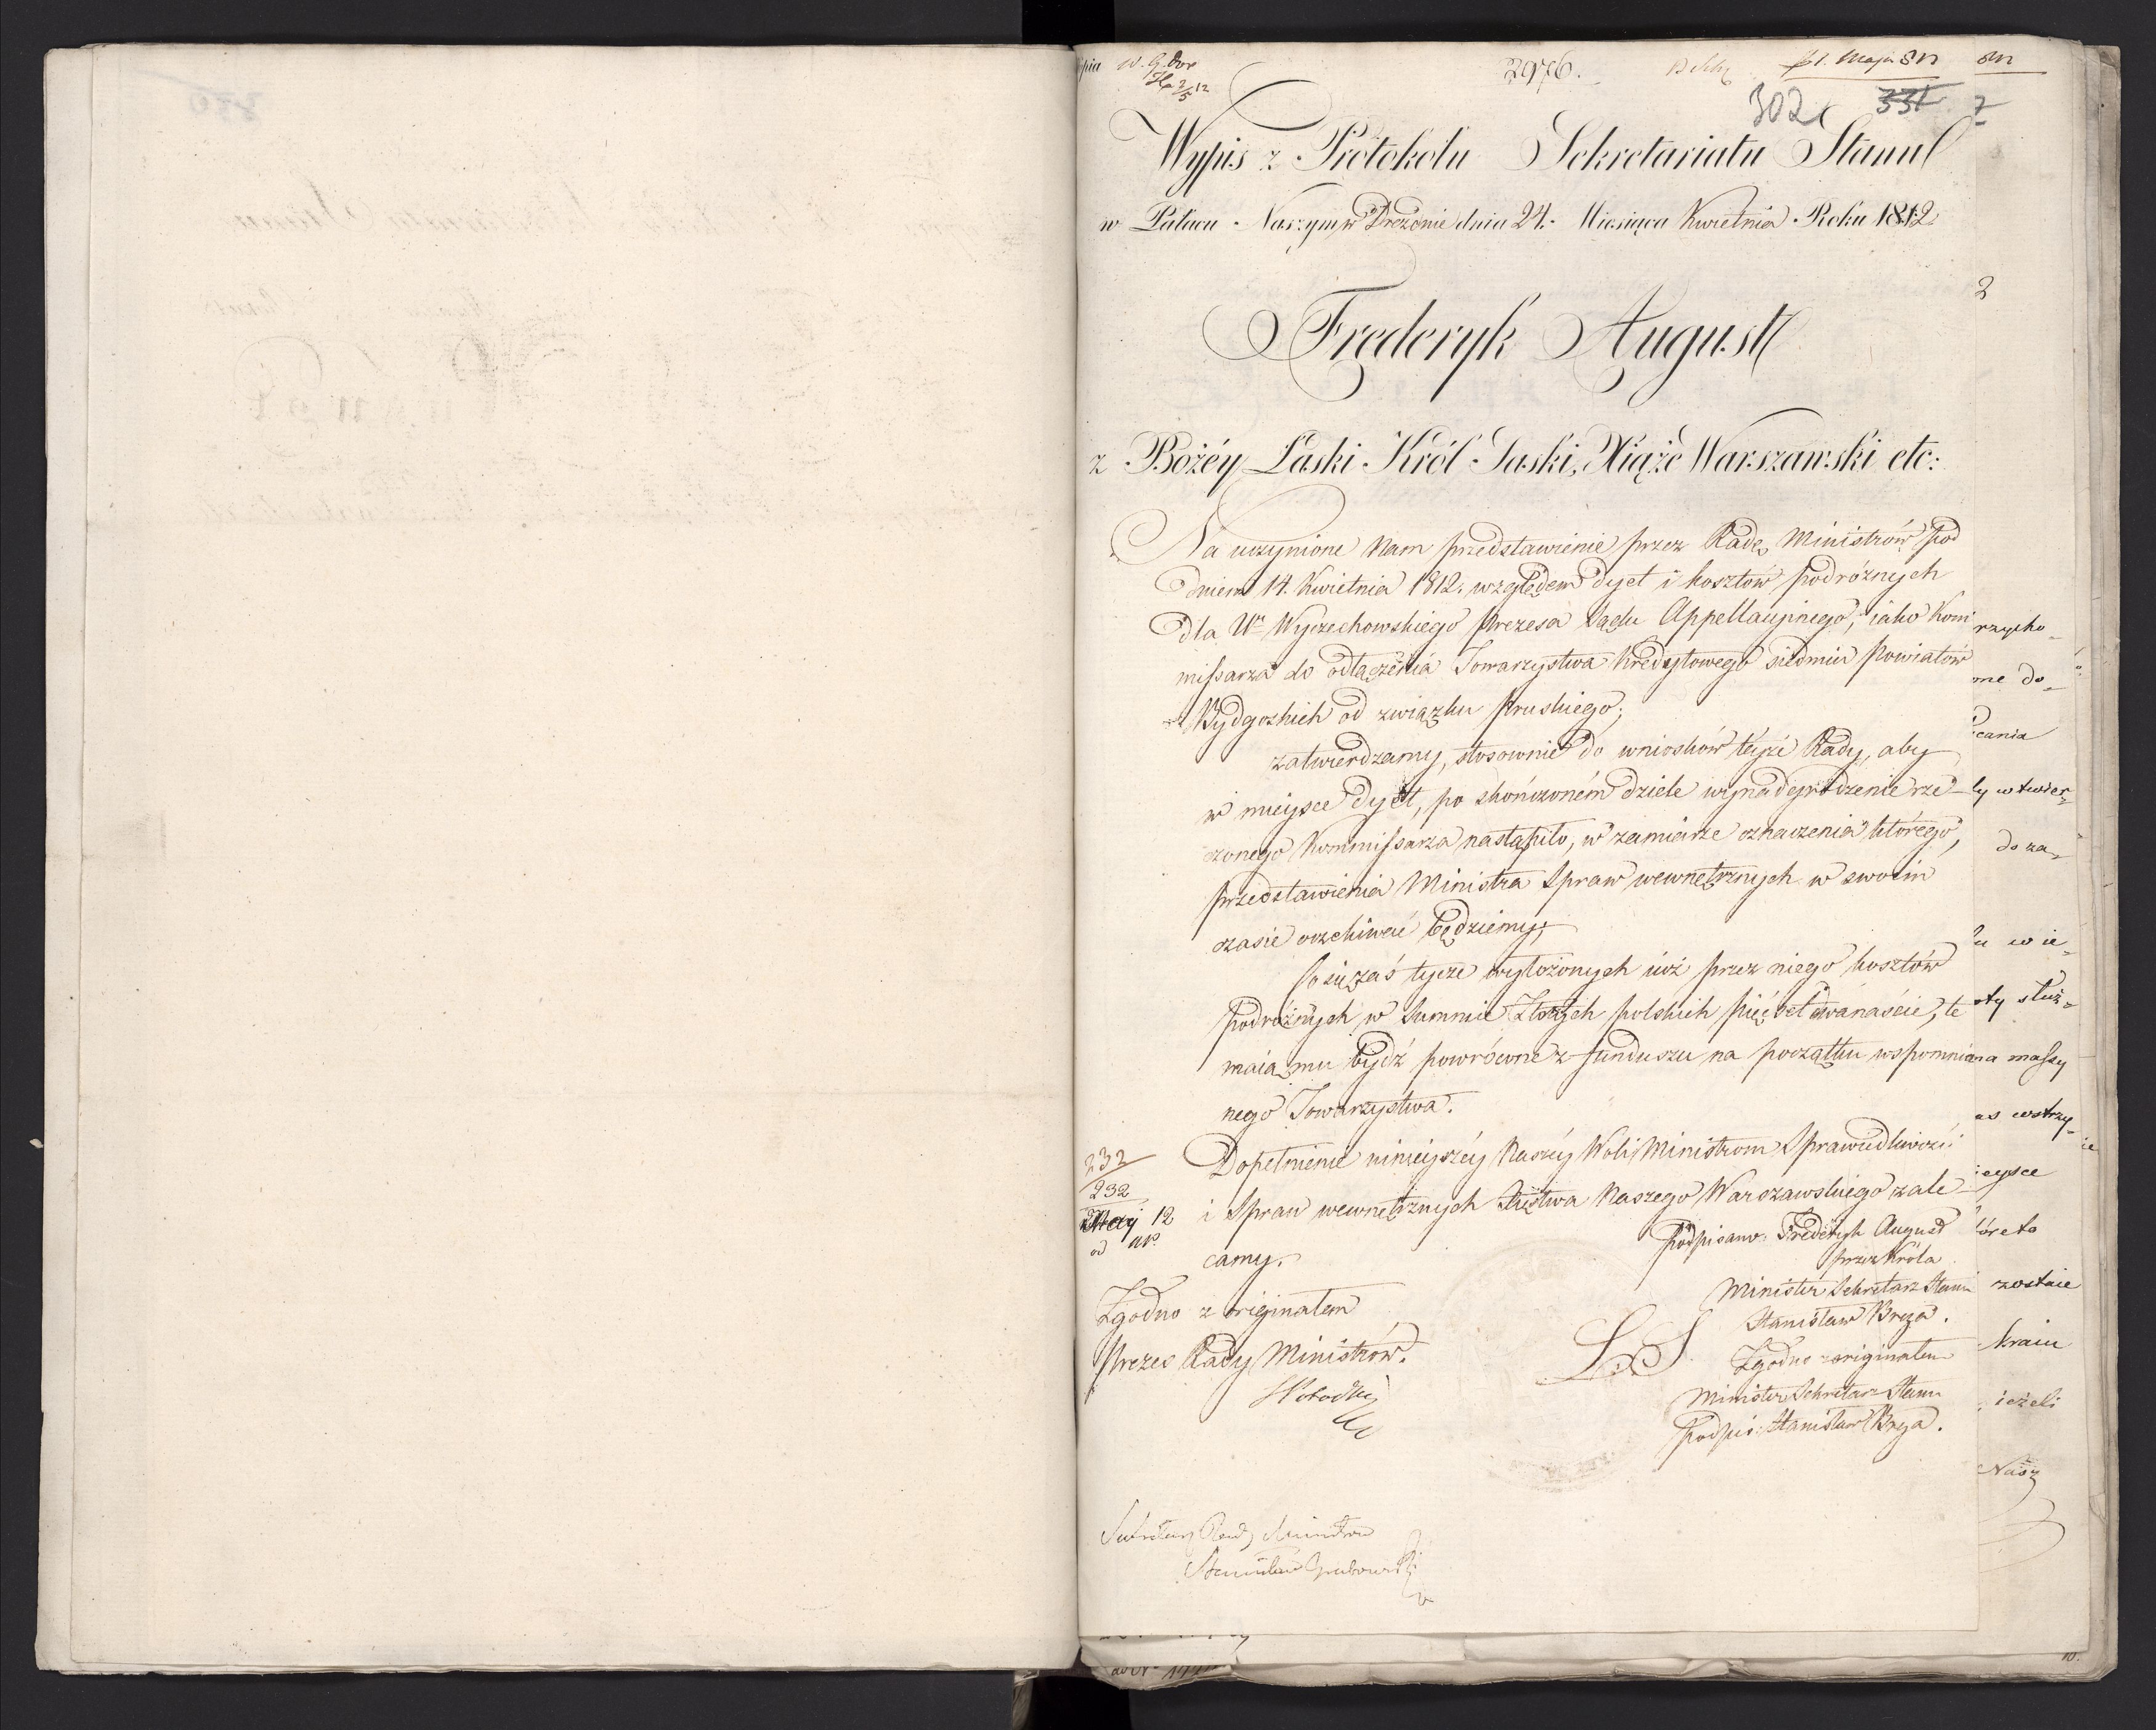 2976. 1. Maja 812
302 331
Wypis z Protokołu Sekretariatu Stanu
w Pałacu Naszym w Dreźnie dnia 24. Miesiąca Kwietnia Roku 1812
Frederyk August
z Bożéy Łaski Król Saski, Xiąże Warszawski etc:
Na uczynione Nam przedstawienie przez Radę Ministrów pod
dniem 14. Kwietnia 1812. względem dyet i kosztów podróżnych
dla Ur Wyczechowskiego Prezesa Sądu Appellacyinego, iako Kom
missarza do odłączenia Towarzystwa Kredytowego siedmiu Powiatów
Bydgoskich od związku Pruskiego;
zatwierdzamy, stosownie do wniosków teyże Rady, aby
w mieysce dyet, po skończoném dziele wynadgrodzenie rze-
czonego Kommissarza nastąpiło, w zamiarze oznaczenia którego,
przedstawienia Ministra Spraw wewnętrznych w swoim
czasie oczekiwać będziemy;
Co się zaś tycze wyłożonych iuż przez niego kosztów
podróżnych w Summie Złotych polskich pięćset dwanaście, te
maią mu bydź powrócone z funduszu na początku wspomnio
nego Towarzystwa.
Dopełnienie ninieyszéy Naszéy Woli Ministrom Sprawiedliwości
i Spraw wewnętrznych Xięstwa Naszego Warszawskiego zale
camy.
232
232
Maj 12
Podpisano: Frederyk August
przez Króla
Minister Sekretarz Stanu
Stanisław Breza.
L.S.
Zgodno z originałem
Minister Sekretarz Stanu
podpis: Stanisław Breza.
Zgodno z originałem
Prezes Rady Ministrów.
Sekretarz Rady Ministrów
Stanisław Grabowski
812
7
2
rzycho-
one do-
cania
ły w twier-
do za-
łu w ie-
oty służ-
na massy
as wstrzy-
ieysce
tóreto
zostaie
kraiu
ieżeli
Nasz